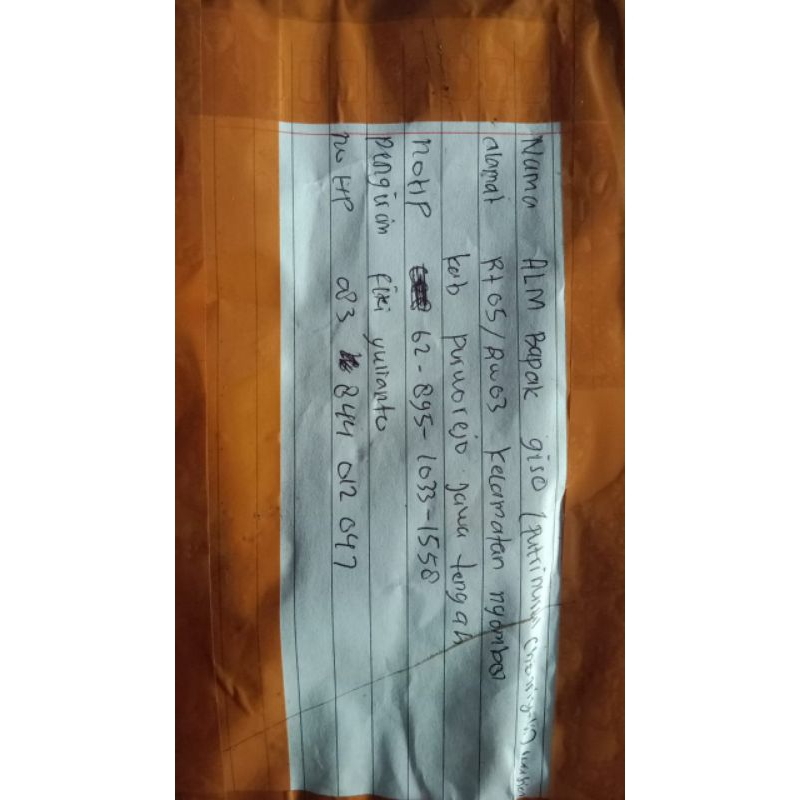 Nama ALM Bapak giso (putri
alamat Rt 05/Rw 03 kecamatan ngombol
kab purworejo jawa tengah
no HP 62-895-1033-1558
pengirim fiki yulianto
no HP 083 844 012 047